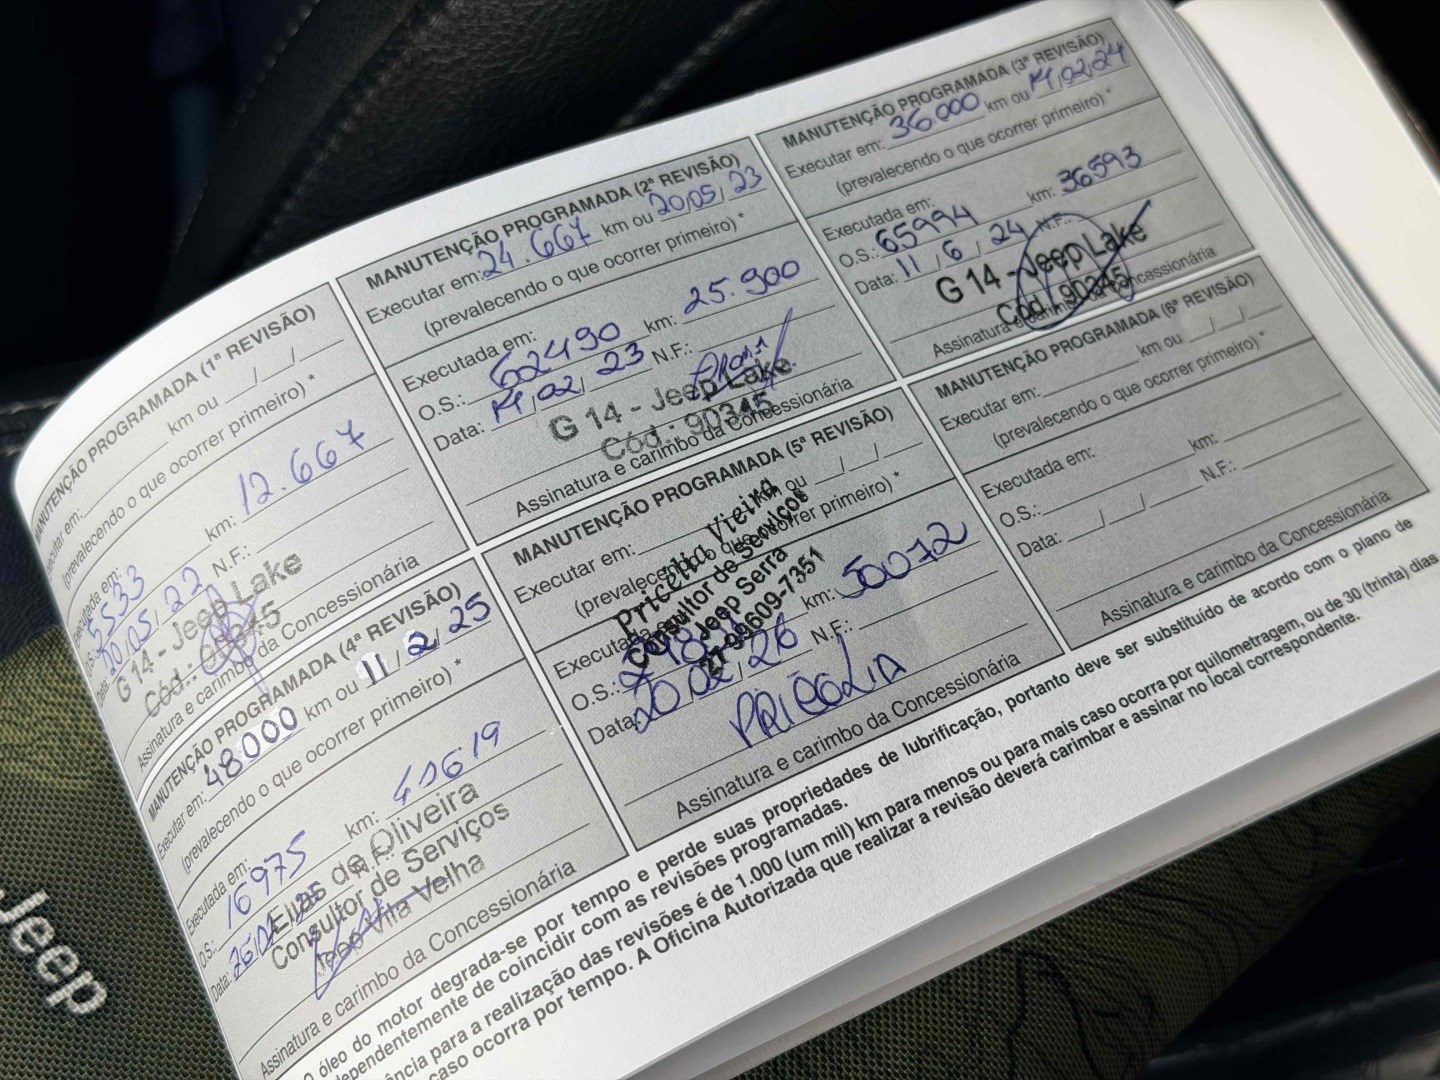 MANUTENÇÃO PROGRAMADA (1ª REVISÃO)
Executar em: km ou / /
(prevalecendo o que ocorrer primeiro) *
Executada em: km: 12.667
O.S.: 5533 N.F.:
Data: 20/05/22
G 14 - Jeep Lake
Cód.: 90345
Assinatura e carimbo da Concessionária
MANUTENÇÃO PROGRAMADA (2ª REVISÃO)
Executar em: 24.667 km ou 20/05/23
(prevalecendo o que ocorrer primeiro) *
Executada em: km: 25.900
O.S.: 62490 N.F.:
Data: 14/02/23
G 14 - Jeep Lake
Cód.: 90345
Assinatura e carimbo da Concessionária
MANUTENÇÃO PROGRAMADA (3ª REVISÃO)
Executar em: 36000 km ou 14/02/24
(prevalecendo o que ocorrer primeiro) *
Executada em: km: 36593
O.S.: 65994 N.F.:
Data: 11/6/24
G 14 - Jeep Lake
Cód.: 90345
Assinatura e carimbo da Concessionária
MANUTENÇÃO PROGRAMADA (4ª REVISÃO)
Executar em: 48000 km ou 11/2/25
(prevalecendo o que ocorrer primeiro) *
Executada em: km: 41619
O.S.: 16975
Data:
Elias de Oliveira
Consultor de Serviços
Jeep Vila Velha
Assinatura e carimbo da Concessionária
MANUTENÇÃO PROGRAMADA (5ª REVISÃO)
Executar em: km ou / /
(prevalecendo o que ocorrer primeiro) *
Pricella Vieira
Consultor de Serviços
Jeep Serra
27-99609-7351
Executada em: km: 50072
O.S.: N.F.:
Data: 20/02/26
Assinatura e carimbo da Concessionária
MANUTENÇÃO PROGRAMADA (6ª REVISÃO)
Executar em: km ou / /
(prevalecendo o que ocorrer primeiro) *
Executada em: km:
O.S.: N.F.:
Data: / /
Assinatura e carimbo da Concessionária
O óleo do motor degrada-se por tempo e perde suas propriedades de lubrificação, portanto deve ser substituído de acordo com o plano de
independentemente de coincidir com as revisões programadas.
ância para a realização das revisões é de 1.000 (um mil) km para menos ou para mais caso ocorra por quilometragem, ou de 30 (trinta) dias
caso ocorra por tempo. A Oficina Autorizada que realizar a revisão deverá carimbar e assinar no local correspondente.
Jeep